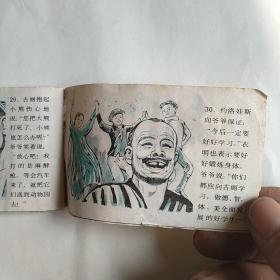 29. 古丽抱起
小熊伤心地
说：“您把大熊
打死了，小熊
崽怎么办呢？”
爷爷笑着说：
“放心吧！我
打的是麻醉
枪。等会汽车
来了，就把它
们送到动物园
去！”
30. 约洛娃斯
向爷爷保证，
“今后一定要
好好学习。”衣
明也表示要好
好锻炼身体。
爷爷说：“你们
都应向古丽学
习，做德、智、
体、美全面发
展的好学生。”